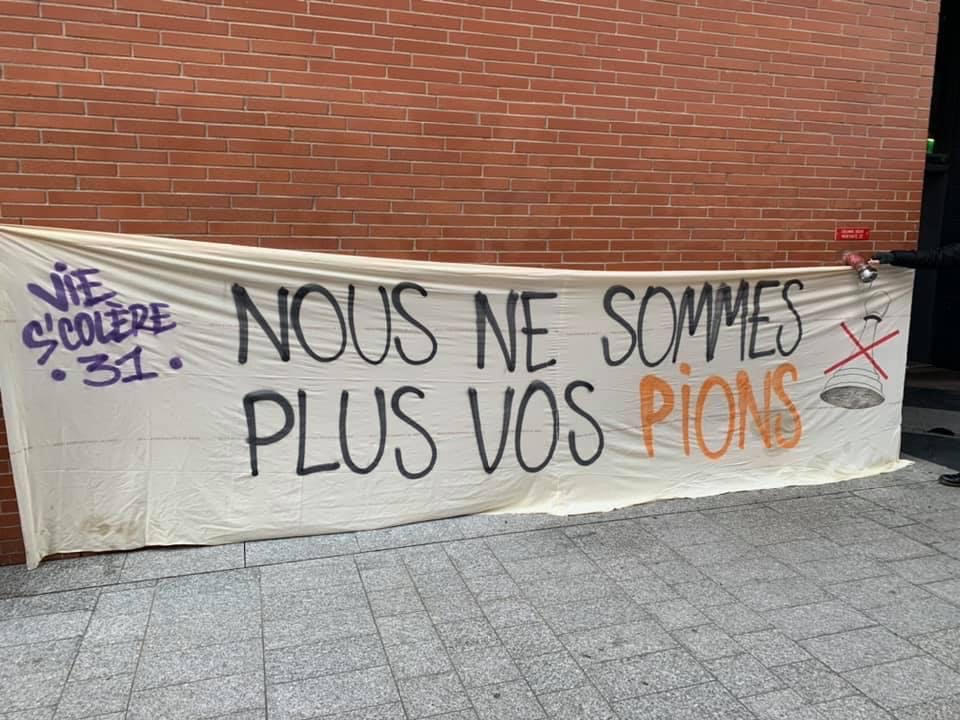 ViE
S'COLÈRE
• 31 •
NOUS NE SOMMES
PLUS VOS PiONS
COLONNE SECHE